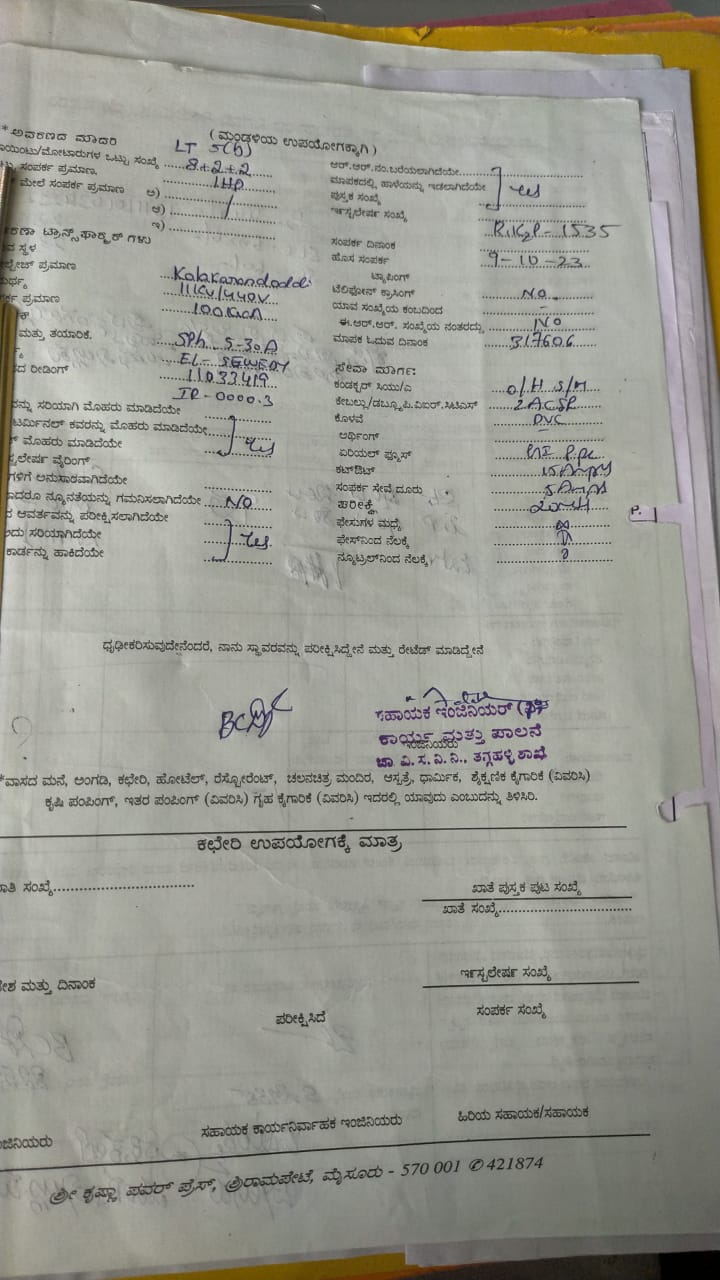 *ಅವಕಣದ ಮಾದರಿ
(ಮಂಡಳಿಯ ಉಪಯೋಗಕ್ಕಾಗಿ)
LT 5(b)
ಾಯಿಂಟು/ಮೋಟಾರುಗಳ ಒಟ್ಟು ಸಂಖ್ಯೆ 8+2+2
ಸಂಪರ್ಕ ಪ್ರಮಾಣ. 1HP
ಮೇಲೆ ಸಂಪರ್ಕ ಪ್ರಮಾಣ ಅ)
ಆ)
ಇ)
ಟ್ರಾನ್ಸ್‌ಫಾರ್ಮರ್‌ಗಳು
ಸ್ಥಳ
ಪ್ರಮಾಣ Kalakarandoddi
11KV/440V
ಪ್ರಮಾಣ 100KVA
ಮತ್ತು ತಯಾರಿಕೆ. 5-30A
ದ ರೀಡಿಂಗ್ 11033419
IR-0000.3
ರನ್ನು ಸರಿಯಾಗಿ ಮೊಹರು ಮಾಡಿದೆಯೇ
ಟರ್ಮಿನಲ್ ಕವರನ್ನು ಮೊಹರು ಮಾಡಿದೆಯೇ
ಮೊಹರು ಮಾಡಿದೆಯೇ Yes
ವೈರಿಂಗ್
ಗಳಿಗೆ ಅನುಸಾರವಾಗಿದೆಯೇ
ಾದರೂ ನ್ಯೂನತೆಯನ್ನು ಗಮನಿಸಲಾಗಿದೆಯೇ NO
ದ ಆವರ್ತವನ್ನು ಪರೀಕ್ಷಿಸಲಾಗಿದೆಯೇ
ಅದು ಸರಿಯಾಗಿದೆಯೇ Yes
ಕಾರ್ಡನ್ನು ಹಾಕಿದೆಯೇ
ಆರ್.ಆರ್.ನಂ.ಬರೆಯಲಾಗಿದೆಯೇ
ಮಾಪಕದಲ್ಲಿ ಹಾಳೆಯನ್ನು ಇಡಲಾಗಿದೆಯೇ Yes
ಪುಸ್ತಕ ಸಂಖ್ಯೆ
ಸಂಖ್ಯೆ
-1535
ಸಂಪರ್ಕ ದಿನಾಂಕ
ಹೊಸ ಸಂಪರ್ಕ 9-10-23
ಟ್ಯಾಪಿಂಗ್
ಟೆಲಿಫೋನ್ ಕ್ರಾಸಿಂಗ್ NO
ಯಾವ ಸಂಖ್ಯೆಯ ಕಂಬದಿಂದ -
ಈ.ಆರ್.ಆರ್. ಸಂಖ್ಯೆಯ ನಂತರದ್ದು NO
ಮಾಪಕ ಓದುವ ದಿನಾಂಕ 317606
ಸೇವಾ ಮಾರ್ಗ:
ಕಂಡಕ್ಟರ್ ಸಿಯು/ಎ O/H S/M
ಕೇಬಲ್ಲು/ಡಬ್ಲ್ಯೂಪಿ.ವಿಐರ್.ಸಿಟಿಎಸ್ 2ACSR
ಕೊಳವೆ PVC
ಅರ್ಥಿಂಗ್ -
ಏರಿಯಲ್ ಫ್ಯೂಸ್
ಕಟ್‌ಔಟ್ 15Amps
ಸಂಪರ್ಕ ಸೇವೆ ದೂರು 5Amps
ಪರೀಕ್ಷೆ 20mH
ಫೇಸುಗಳ ಮಧ್ಯೆ
ಫೇಸ್‌ನಿಂದ ನೆಲಕ್ಕೆ
ನ್ಯೂಟ್ರಲ್‌ನಿಂದ ನೆಲಕ್ಕೆ
P.
ಧೃಢೀಕರಿಸುವುದೇನೆಂದರೆ, ನಾನು ಸ್ಥಾವರವನ್ನು ಪರೀಕ್ಷಿಸಿದ್ದೇನೆ ಮತ್ತು ರೇಟೆಡ್ ಮಾಡಿದ್ದೇನೆ
ಸಹಾಯಕ ಇಂಜಿನಿಯರ್
ಕಾರ್ಯ ಮತ್ತು ಪಾಲನೆ
ಇಂಜಿನಿಯರು
ಚಾ. ವಿ. ಸ. ನಿ. ನಿ., ತಗ್ಗಹಳ್ಳಿ ಶಾಖೆ
*ವಾಸದ ಮನೆ, ಅಂಗಡಿ, ಕಛೇರಿ, ಹೋಟೆಲ್, ರೆಸ್ಟೋರೆಂಟ್, ಚಲನಚಿತ್ರ ಮಂದಿರ, ಆಸ್ಪತ್ರೆ, ಧಾರ್ಮಿಕ, ಶೈಕ್ಷಣಿಕ ಕೈಗಾರಿಕೆ (ವಿವರಿಸಿ)
ಕೃಷಿ ಪಂಪಿಂಗ್, ಇತರ ಪಂಪಿಂಗ್ (ವಿವರಿಸಿ) ಗೃಹ ಕೈಗಾರಿಕೆ (ವಿವರಿಸಿ) ಇದರಲ್ಲಿ ಯಾವುದು ಎಂಬುದನ್ನು ತಿಳಿಸಿರಿ.
ಕಛೇರಿ ಉಪಯೋಗಕ್ಕೆ ಮಾತ್ರ
ಾತಿ ಸಂಖ್ಯೆ
ಖಾತೆ ಪುಸ್ತಕ ಪುಟ ಸಂಖ್ಯೆ
ಖಾತೆ ಸಂಖ್ಯೆ
ೇಶ ಮತ್ತು ದಿನಾಂಕ
ಸಂಖ್ಯೆ
ಪರೀಕ್ಷಿಸಿದೆ
ಸಂಪರ್ಕ ಸಂಖ್ಯೆ
ಂಜಿನಿಯರು
ಸಹಾಯಕ ಕಾರ್ಯನಿರ್ವಾಹಕ ಇಂಜಿನಿಯರು
ಹಿರಿಯ ಸಹಾಯಕ/ಸಹಾಯಕ
ಶ್ರೀ ಕೃಷ್ಣಾ ಪವರ್ ಪ್ರೆಸ್, ಶ್ರೀರಾಮಪೇಟೆ, ಮೈಸೂರು - 570 001 ✆ 421874